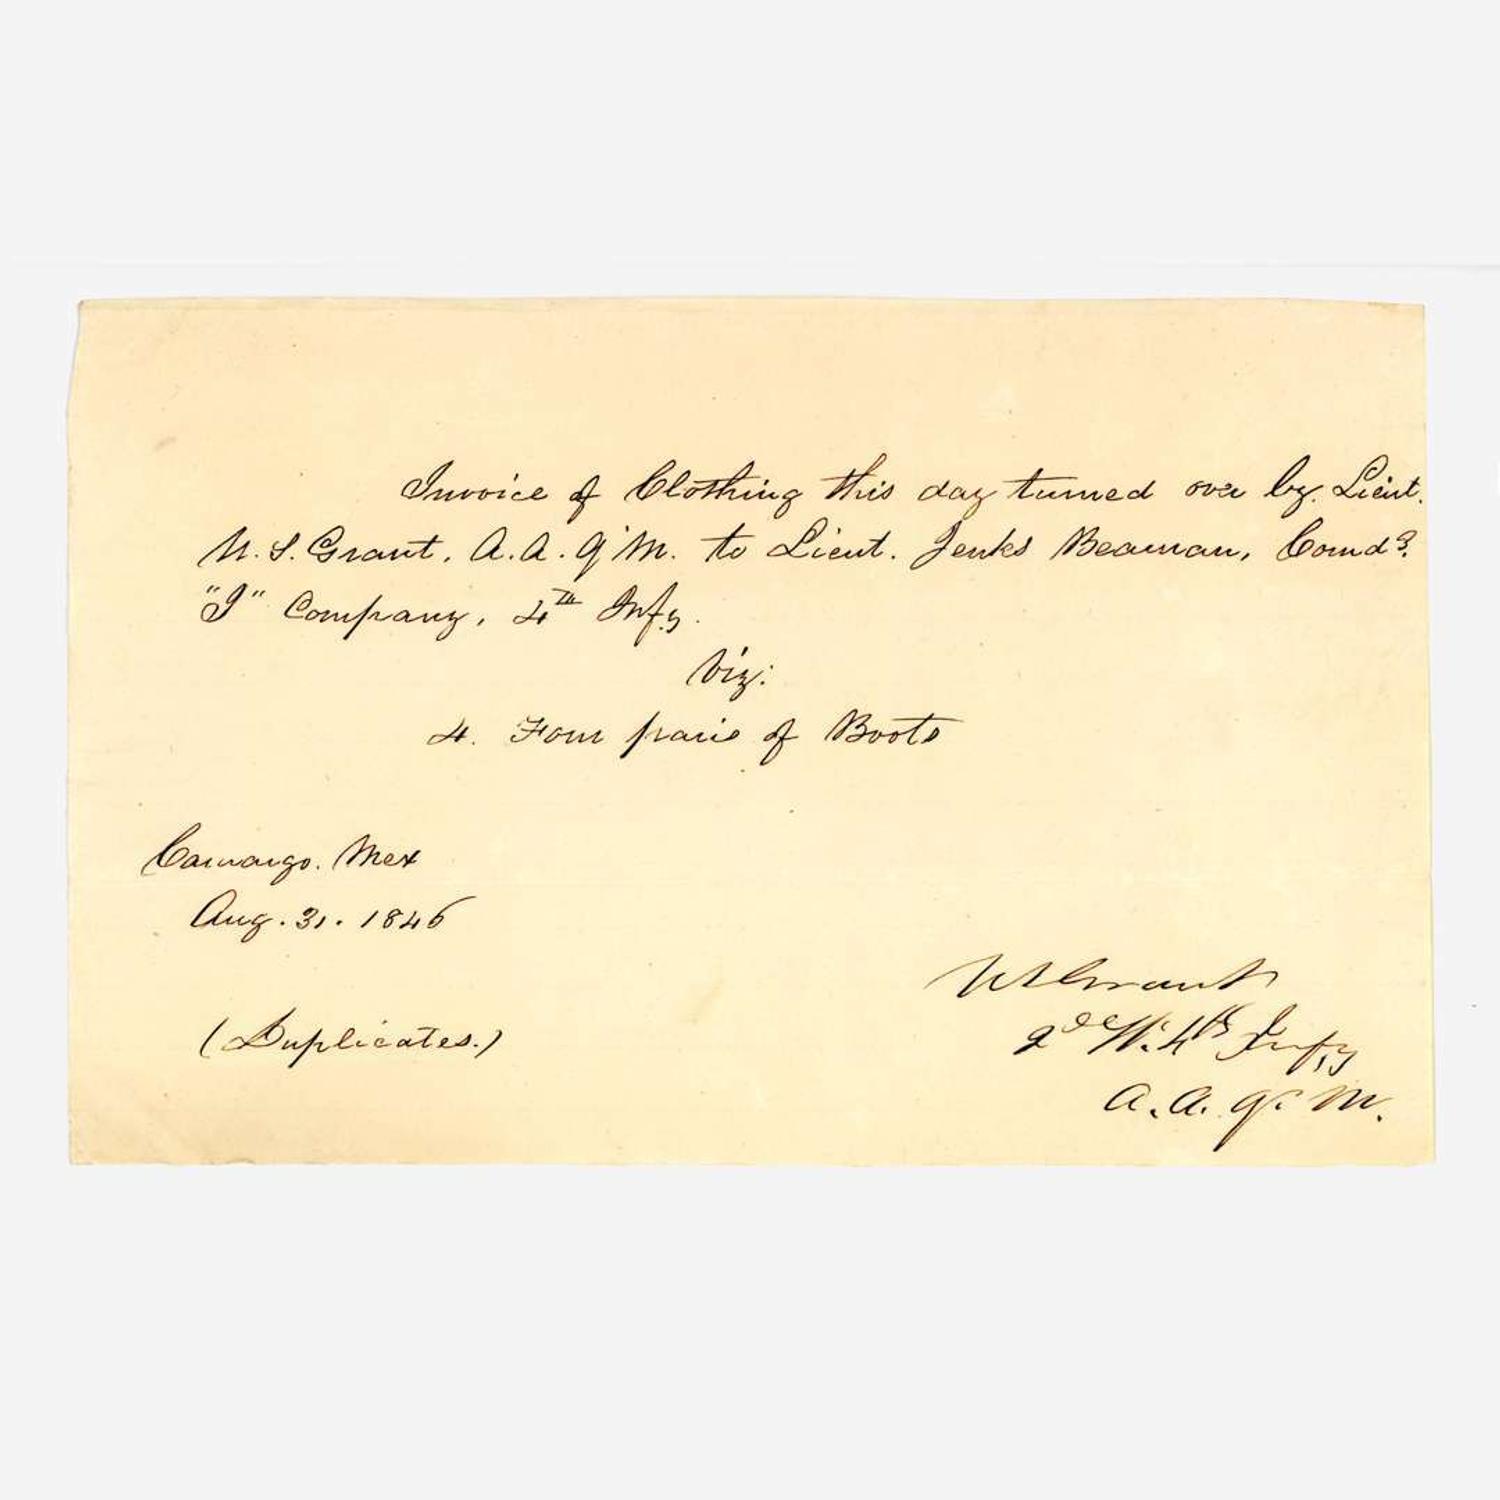 Invoice of Clothing this day turned over by. Lieut.
U. S. Grant, A. A. Q. M. to Lieut. Jenks Beaman, Comdg.
"I" Company, 4th Infy.
Viz:
4. Four pairs of Boots
Camargo. Mex
Aug. 31. 1846
(Duplicates.)
U S Grant
2d Lt. 4th Infy
A. A. Q. M.